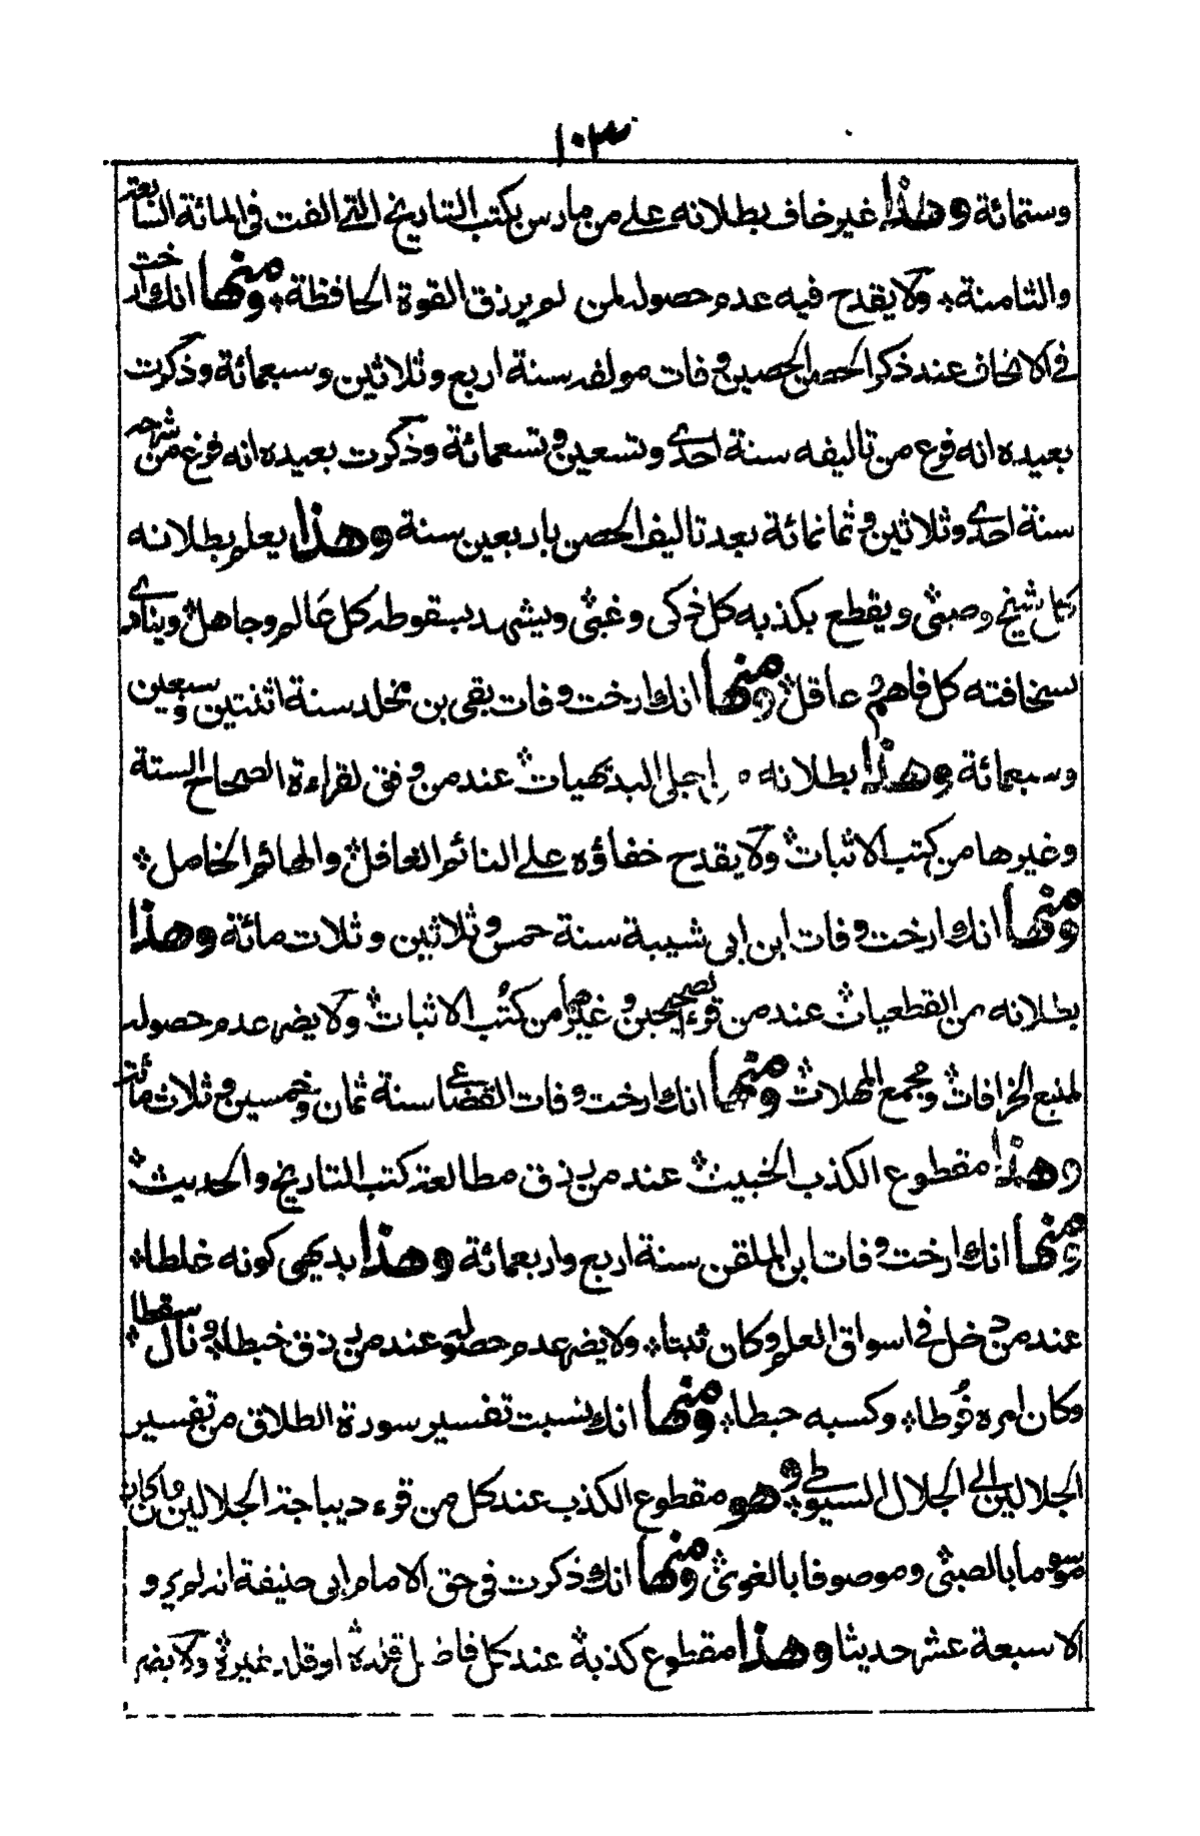 ١٠٣
وستمائة وهذا غير خاف بطلانه على من مارس بكتب التاريخ التي الفت في المائة السابعة
والثامنة ولا يقدح فيه عدم حصوله لمن لم يرزق القوة الحافظة ومنها انك ارخت
في الاتحاف عند ذكر الحصن الحصين وفات مولفه سنة اربع وثلاثين وسبعمائة وذكرت
بعيده انه فرغ من تاليفه سنة احدى وتسعين وتسعمائة وذكرت بعيده انه فرغ من شرحه
سنة احدى وثلاثين وثمانمائة بعد تاليف الحصن باربعين سنة وهذا يعلم بطلانه
كل شيخ وصبي ويقطع بكذبه كل ذكى وغبي ويشهد بسقوطه كل عالم وجاهل وينادى
بسخافته كل فاهم عاقل ومنها انك ارخت وفات بقى بن مخلد سنة اثنتين وسبعين
وسبعمائة وهذا بطلانه اجلى البديهيات عند من وفق لقراءة الصحاح الستة
وغيرها من كتب الاثبات ولا يقدح خفاؤه على النائم الغافل والهائم الخامل
ومنها انك ارخت وفات ابن ابى شيبة سنة خمس وثلاثين وثلاث مائة وهذا
بطلانه من القطعيات عند من قرء الصحيحين وغيرهما من كتب الاثبات ولا يضر عدم حصوله
لمنبع الخرافات ومجمع المهلات ومنها انك ارخت وفات القضاعى سنة ثمان وخمسين وثلاث مائة
وهذا مقطوع الكذب الخبيث عند من رزق مطالعة كتب التاريخ والحديث
ومنها انك ارخت وفات ابن الملقن سنة اربع واربعمائة وهذا بديهى كونه غلطا
عند من دخل في اسواق العلم وكان ثبتا ولا يضر عدم حصوله عند من رزق خبطا ونال سقطا
وكان امره فرطا وكسبه حبطا ومنها انك نسبت تفسير سورة الطلاق من تفسير
الجلالين الى الجلال السيوطى وهو مقطوع الكذب عند كل من قرء ديباجة الجلالين وما كان
موسوما بالصبي وموصوفا بالغوي ومنها انك ذكرت في حق الامام ابى حنيفة انه لم يرو
الا سبعة عشر حديثا وهذا مقطوع كذبه عند كل فاضل ولا يضر